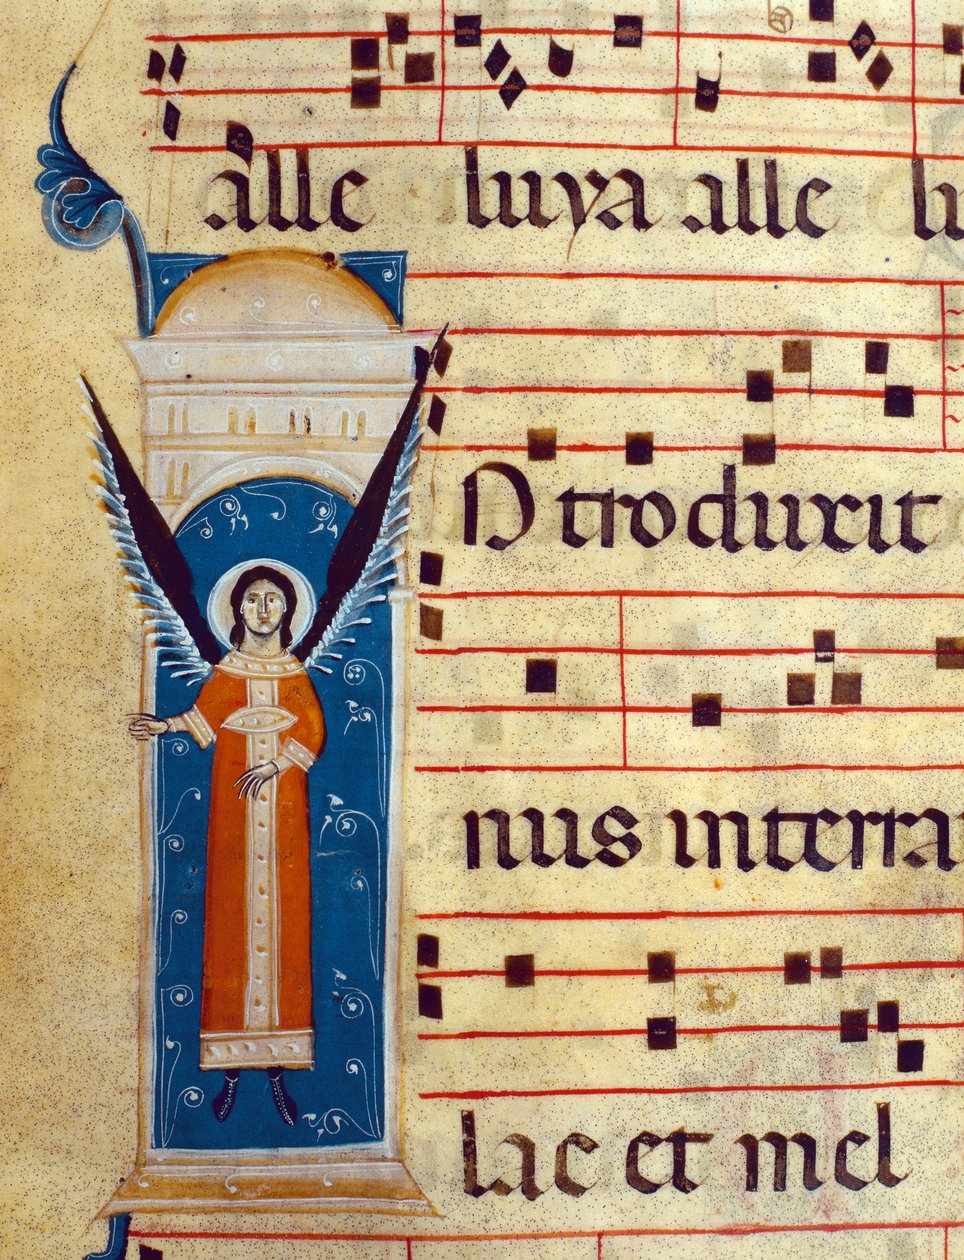 alle luya alle lu
N troduxit
nus in terra
lac et mel